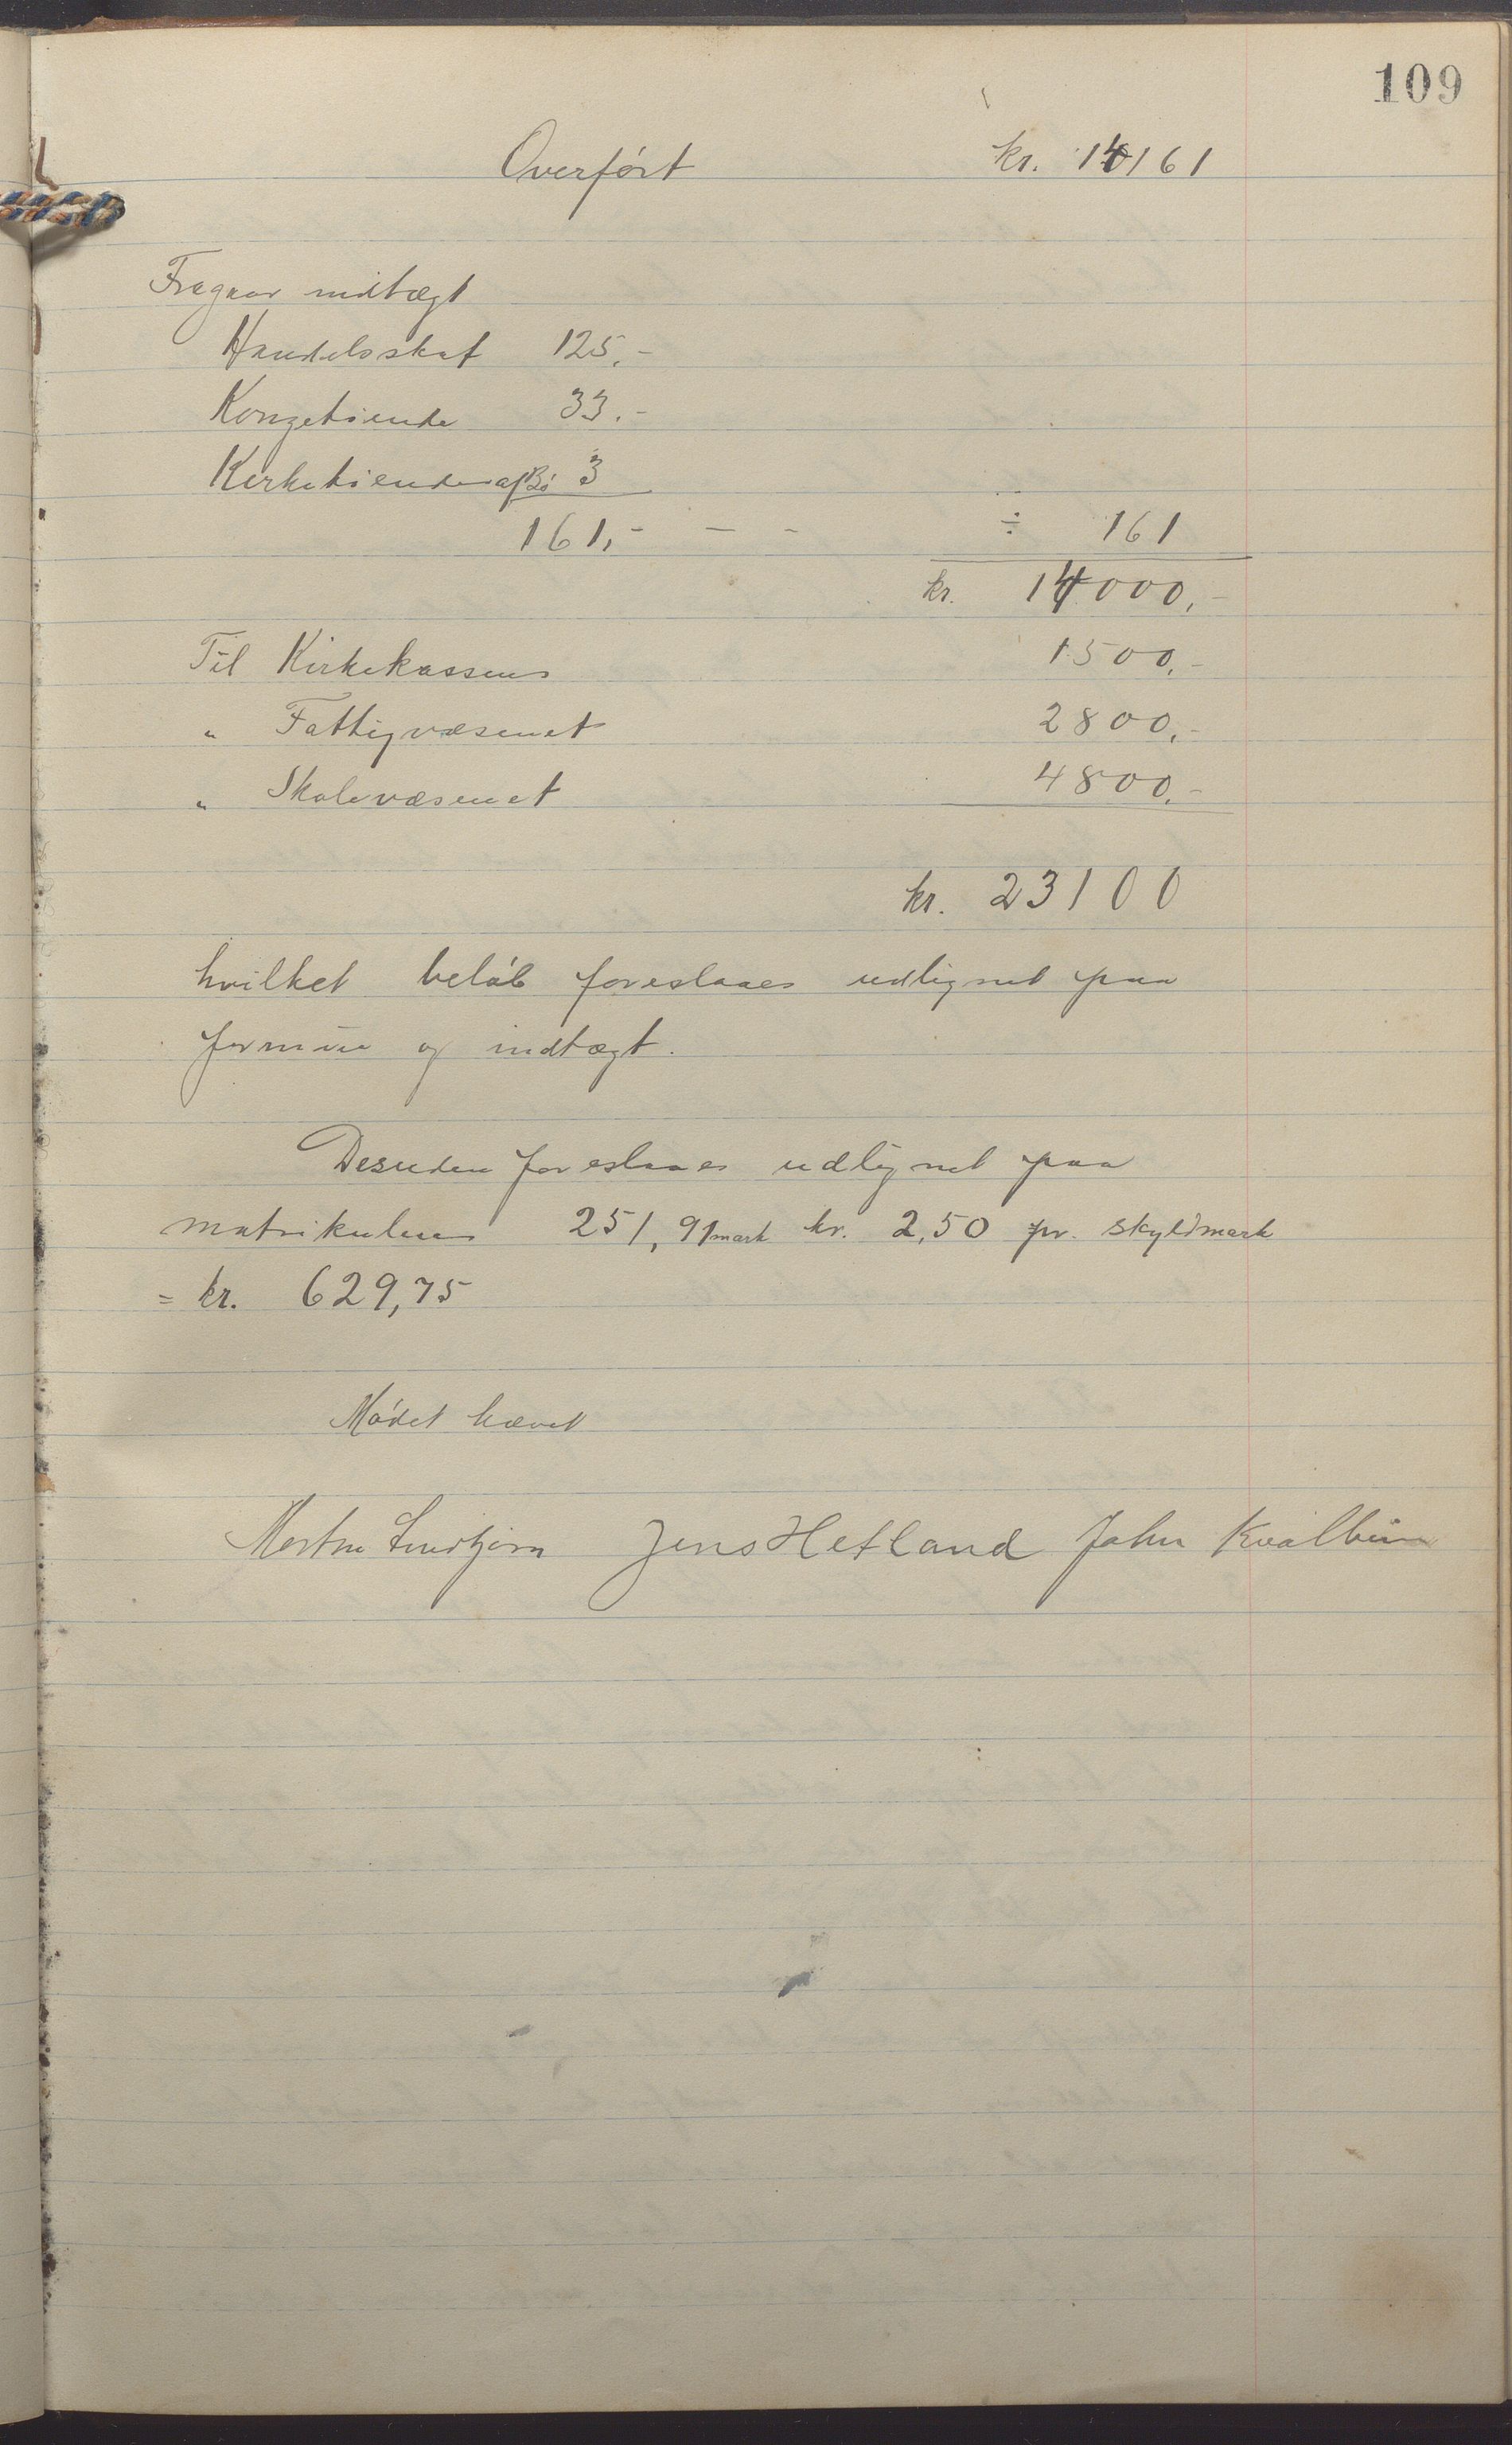 109
Overført kr. 14161
Fragaar indtægt
Handelsskat 125.-
Kongetiende 33.-
Kirketiende af Bø 3
161,- — - ÷ 161
kr. 14000,-
Til Kirkekassen 1500,-
" Fattigvæsenet 2800,-
" Skolevæsenet 4800,-
kr. 23100
hvilket beløb foreslaaes udlignet paa
formue og indtægt.
Desuden foreslaaes udlignet paa
matrikulen 251,91 mark kr. 2,50 pr. skyldmark
= kr. 629,75
Mødet hævet
Morten Jens Hetland John Kvalbein